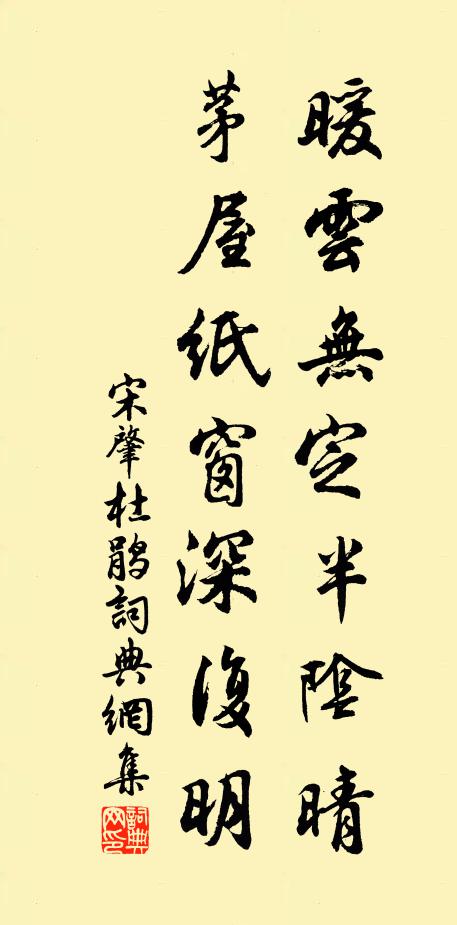 暖雲無定半陰晴
茅屋紙窗深復明
宋肇杜鵑詞典網集
詞典网印